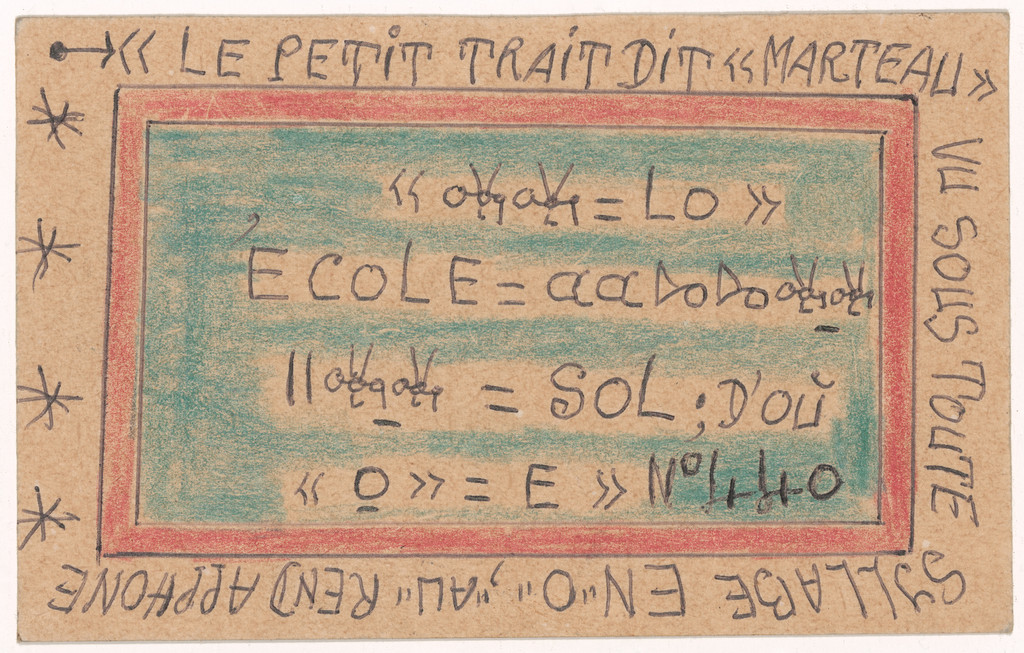 « LE PETIT TRAIT DIT « MARTEAU »
VU SOUS TOUTE
SYLLABE EN "O", "AU" REND APPHONE
= LO »
ÉCOLE =
= SOL ; D'OÙ
« O » = E » N° 440